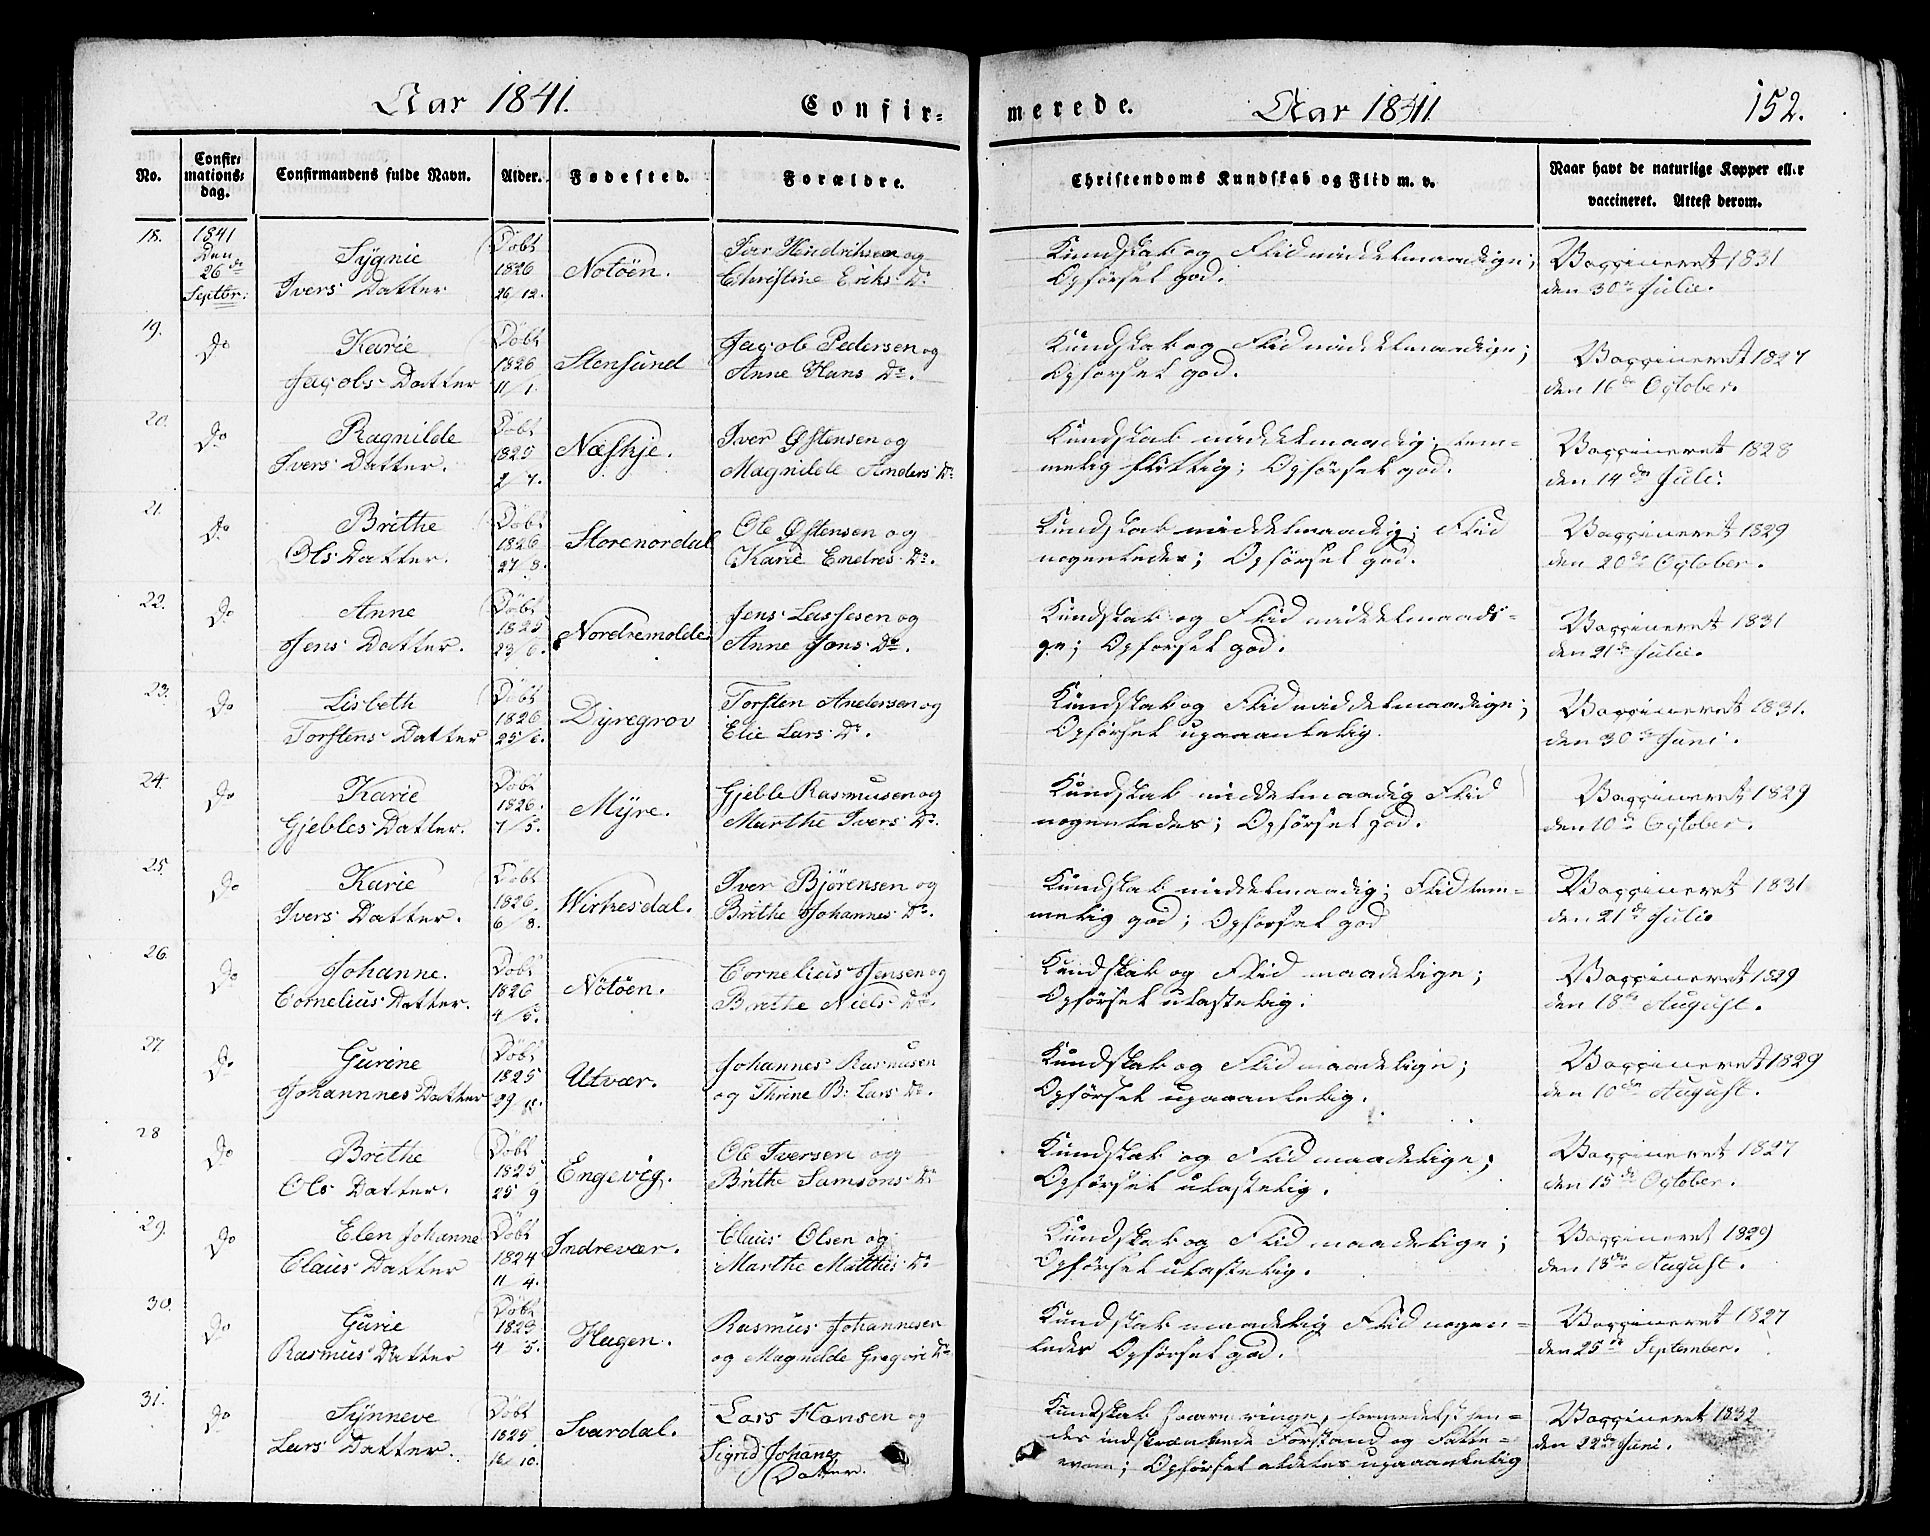 Aar 1841.
Confir-
merede.
Aar 1841.
152.
No.
Confir-
mations-
dag.
Confirmandens fulde Navn.
Alder.
Fødested.
Forældre.
Christendoms Kundskab og Flid m. v.
Naar havt de naturlige Kopper eller
vaccineret. Attest derom.
18.
1841
Den
26de
Septbr:
Sÿgnie
Ivers Datter
Døbt
1826
26 12.
Notöen.
Iver Hendriksen og
Christine Eriks Dr
Kundskab og Flid middelmaadige;
Opførsel god.
Vaccineret 1831
den 30te Julie.
19.
Do
Karie
Jacobs Datter
Døbt
1826
11/1.
Stensund
Jacob Pedersen og
Anne Hans Dr.
Kundskab og Flid middelmaadige;
Opførsel god.
Vaccineret 1827
den 16de October.
20.
Do
Ragnilde
Ivers Datter.
Døbt
1825
2/7.
Næskje.
Iver Østensen og
Magnilde Anders Dr
Kundskab middelmaadig; tem-
melig flittig; Opførsel god.
Vaccineret 1828
den 14de Juli.
21.
Do
Brithe
Ols Datter.
Døbt
1826
27/8.
Storenordal
Ole Østensen og
Karie Endres Dr.
Kundskab middelmaadig; Flid
nogenledes; Opførsel god.
Vaccineret 1829
den 20de October.
22.
Do
Anne
Jens Datter.
Døbt
1825
23/6.
Nordremolde
Jens Lassesen og
Anne Jons Dr.
Kundskab og Flid middelmaadi-
ge; Opførsel god.
Vaccineret 1831
den 21de Julie.
23.
Do
Lisbeth
Torstens Datter
Døbt
1826
25/6.
Dÿregrov
Torsten Andersen og
Elie Lars Dr.
Kundskab og Flid middelmaadige;
Opførsel upaaankelig.
Vaccineret 1831.
den 30te Juni.
24.
Do
Karie
Gjebles Datter.
Døbt
1826.
7/5.
Mÿre.
Gjeble Rasmusen og
Marthe Ivers Dr.
Kundskab middelmaadig Flid
nogenledes; Opførsel god.
Vaccineret 1829
den 10de October.
25.
Do
Karie
Ivers Datter.
Døbt
1826.
6/8.
Wirkesdal.
Iver Bjørensen og
Brithe Johannes Dr.
Kundskab middelmaadig; Flid tem-
melig god; Opførsel god
Vaccineret 1831
den 21de Julie
26.
Do
Johanne.
Cornelius Datter.
Døbt
1826
4/5.
Nötöen.
Cornelius Jensen og
Brithe Niels Dr.
Kundskab og Flid maadelige;
Opførsel ulastelig.
Vaccineret 1829
den 18de August.
27
Do
Gurine
Johannnes Datter
Døbt
1825
Utvær.
Johannes Rasmusen
og Thrine B: Lars Dr.
Kundskab og Flid maadelige;
Opførsel upaaankelig.
Vaccineret 1829
den 10de August.
28
Do
Brithe
Ols Datter.
Døbt
1825
25 9
Engevig.
Ole Iversen og
Brithe Samsons Dr
Kundskab og Flid maadelige;
Opførsel ulastelig.
Vaccineret 1827
den 15de October.
29.
Do
Elen Johanne
Claus Datter
Døbt
1824
11 4.
Indrevær.
Claus Olsen og
Marthe Matthis Dr
Kundskab og Flid maadelige;
Opførsel ulastelig.
Vaccineret 1829
den 18de August.
30.
Do
Gurie
Rasmus Datter
Døbt
1823
4 5.
Hagen.
Rasmus Johannesen
og Magnilde Gregori Dr
Kundskab maadelig Flid nogen-
ledes Opførsel god.
Vaccineret 1827
den 25de September.
31.
Do
Sÿnneve
Lars Datter.
Døbt
1825.
16/10.
Svardal.
Lars Hansen og
Sigrid Johanes
Datter.
Kundskab svare ringe, formedelst hen-
des indskrænkede Forstand og Fatte-
evne; Opførsel aldeles upaaankelig
Vaccineret 1832
den 22de Juni.